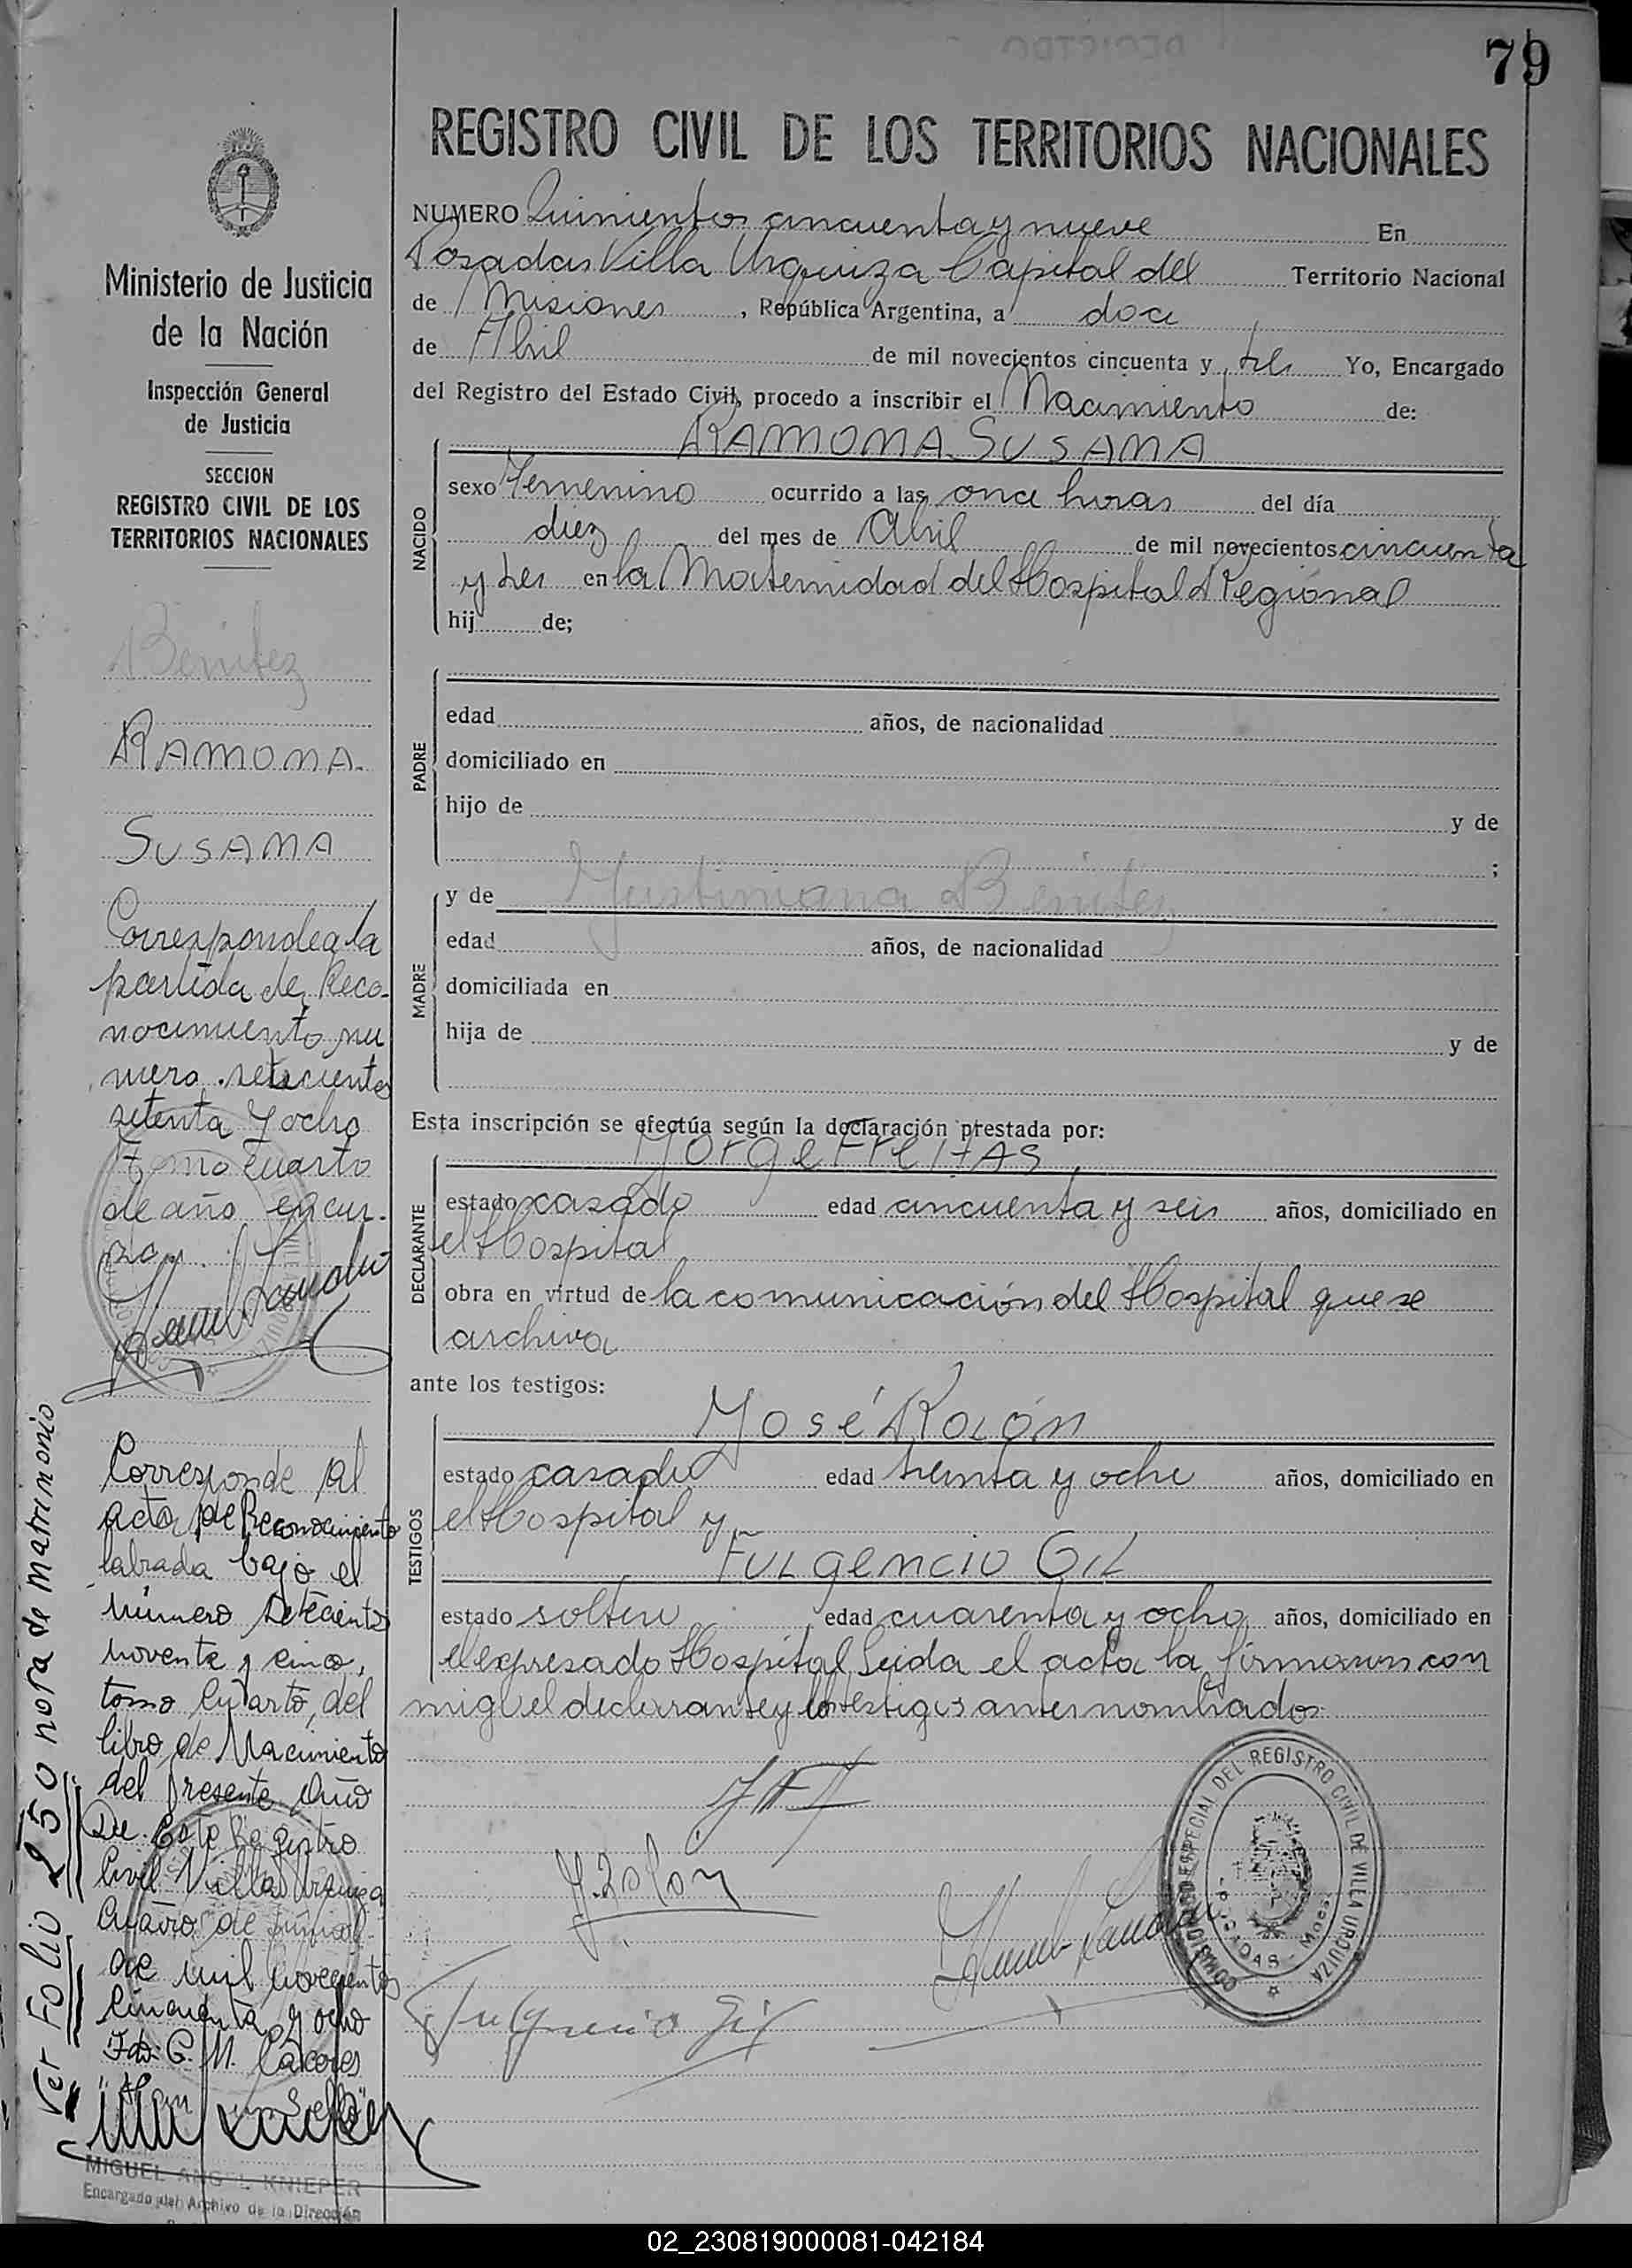 79
REGISTRO CIVIL DE LOS TERRITORIOS NACIONALES
Ministerio de Justicia
de la Nación
Inspección General
de Justicia
SECCION
REGISTRO CIVIL DE LOS
TERRITORIOS NACIONALES
Benitez
RAMONA
SUSANA
Corresponde a la
partida de Reco-
nocimiento nu
mero setecientos
setenta y ocho
tomo cuarto
de año en cur-
so
Corresponde al
acta de Reconocimiento
labrada bajo el
número setecientos
noventa y cinco,
tomo Cuarto, del
libro de Nacimiento
del presente Año
De este Registro
Civil Villa Urquiza
de
de mil novecientos
cincuenta y ocho
Fdo: G. M. Cáceres
Hay un Sello"
MIGUEL ANGEL KNIEPER
Encargado del Archivo de la Dirección
Ver Folio 250 nota de matrimonio
NUMERO Quinientos cincuenta y nueve En
Posadas Villa Urquiza Capital del Territorio Nacional
de Misiones, República Argentina, a doce
de Abril de mil novecientos cincuenta y tres Yo, Encargado
del Registro del Estado Civil, procedo a inscribir el Nacimiento de:
NACIDO
RAMONA SUSANA
sexo Femenino ocurrido a las once horas del día
diez del mes de Abril de mil novecientos cincuenta
y tres en la Maternidad del Hospital Regional
hij de;
PADRE
edad años, de nacionalidad
domiciliado en
hijo de y de
;
MADRE
y de Justiniana Benitez
edad años, de nacionalidad
domiciliada en
hija de y de
Esta inscripción se efectúa según la declaración prestada por:
DECLARANTE
Jorge Freitas
estado casado edad cincuenta y seis años, domiciliado en
el Hospital
obra en virtud de la comunicación del Hospital que se
archiva
ante los testigos:
TESTIGOS
José Rolón
estado casado edad treinta y ocho años, domiciliado en
el Hospital y
FULgencio GIL
estado soltero edad cuarenta y ocho años, domiciliado en
el expresado Hospital Leida el acta la firmaron con
migo el declarante y los testigos antes nombrados
J. Rolon
Fulgencio Gil
COMISIONADO ESPECIAL DEL REGISTRO CIVIL DE VILLA URQUIZA
POSADAS - Mnes.
02_230819000081-042184